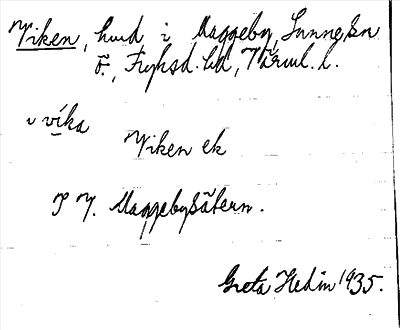 Viken, hmd i Maggeby, Sunne sn
Ö., Fryksd. hd, Värml. l.
v víka
Viken ek
P V. Maggebysätern.
Greta Hedin 1935.